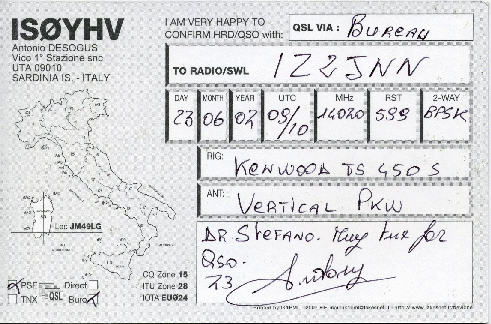 ISØYHV
Antonio DESOGUS
Vico 1° Stazione snc
UTA 09010
SARDINIA IS. - ITALY
I AM VERY HAPPY TO
CONFIRM HRD/QSO with:
QSL VIA: BUREAU
TO RADIO/SWL IZ2JNN
DAY MONTH YEAR UTC MHz RST 2-WAY
23 06 02 09/10 14020 599 BPSK
RIG: KENWOOD TS 450 S
ANT: VERTICAL PKW
DR STEFANO. for
QSO.
73
Loc JM49LG
CQ Zone 15
ITU Zone 28
IOTA EU024
PSE Direct
QSL
TNX Buro